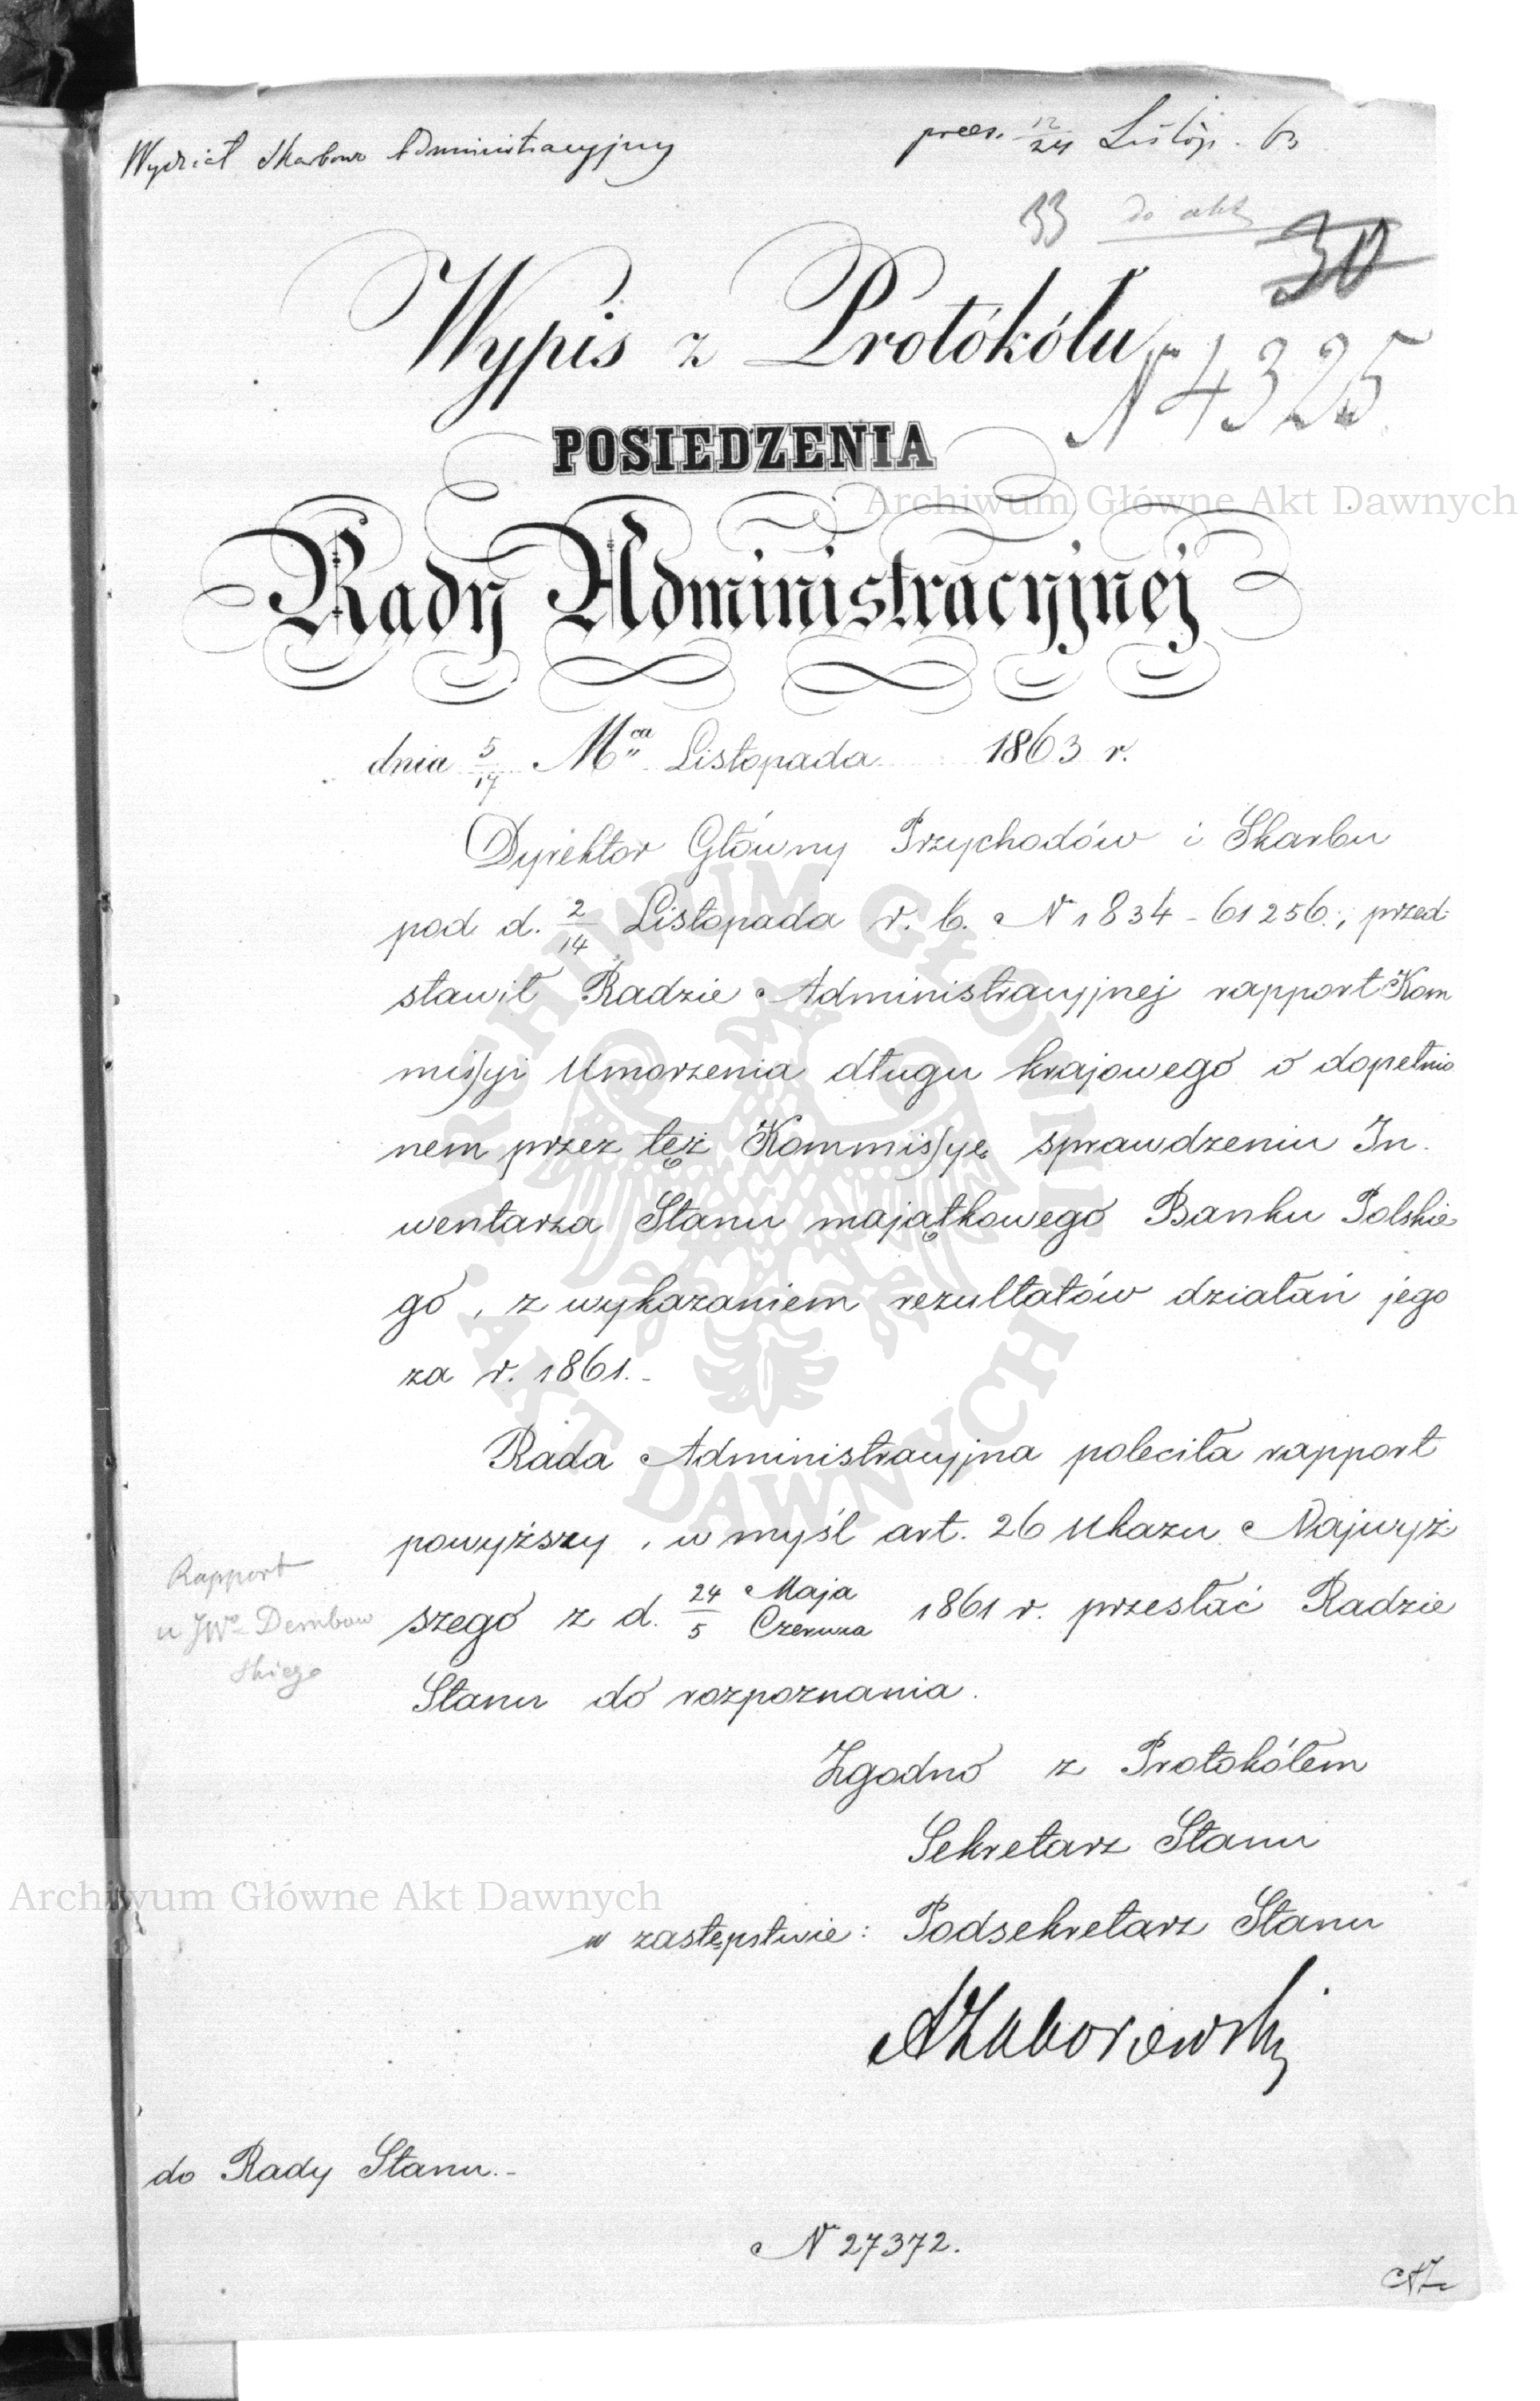 Wydział Skarbowo Administracyjny
prez. 12/24 Listop. 63
33 do akt
30
N 4325
Wypis z Protokółu
POSIEDZENIA
Archiwum Główne Akt Dawnych
Rady Administracyjnej
dnia 5/17 Mca Listopada 1863 r.
Dyrektor Główny Przychodów i Skarbu
pod d. 2/14 Listopada r. b. N 1834-61256., przed-
stawił Radzie Administracyjnej rapport Kom
missyi Umorzenia długu krajowego o dopełnio
nem przez tęż Kommissyę sprawdzeniu In-
wentarza Stanu majątkowego Banku Polskie
go, z wykazaniem rezultatów działań jego
za r. 1861.-
Rada Administracyjna poleciła rapport
powyższy, w myśl art. 26 Ukazu Najwyż-
szego z d. 24/5 Maja/Czerwca 1861 r. przesłać Radzie
Stanu do rozpoznania.
Rapport
u JWo Dembow
skiego
Zgodno z Protokółem
Sekretarz Stanu
Archiwum Główne Akt Dawnych
w zastępstwie: Podsekretarz Stanu
AZaborowski
do Rady Stanu.-
N 27372.
ARCHIWUM GŁÓWNE · AKT DAWNYCH ·